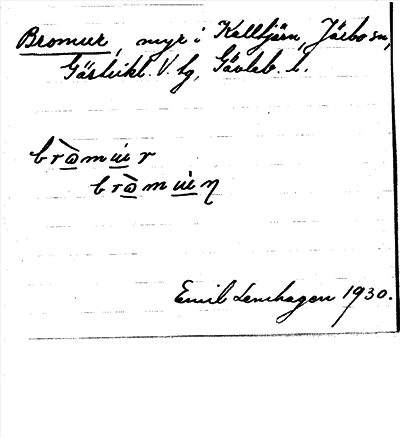 Bromur, myr i Kalltjärn, Järbo sn,
Gästrikl. V. tg, Gävleb. l.
bròmùr
bròmùη
Emil Lenhagen 1930.